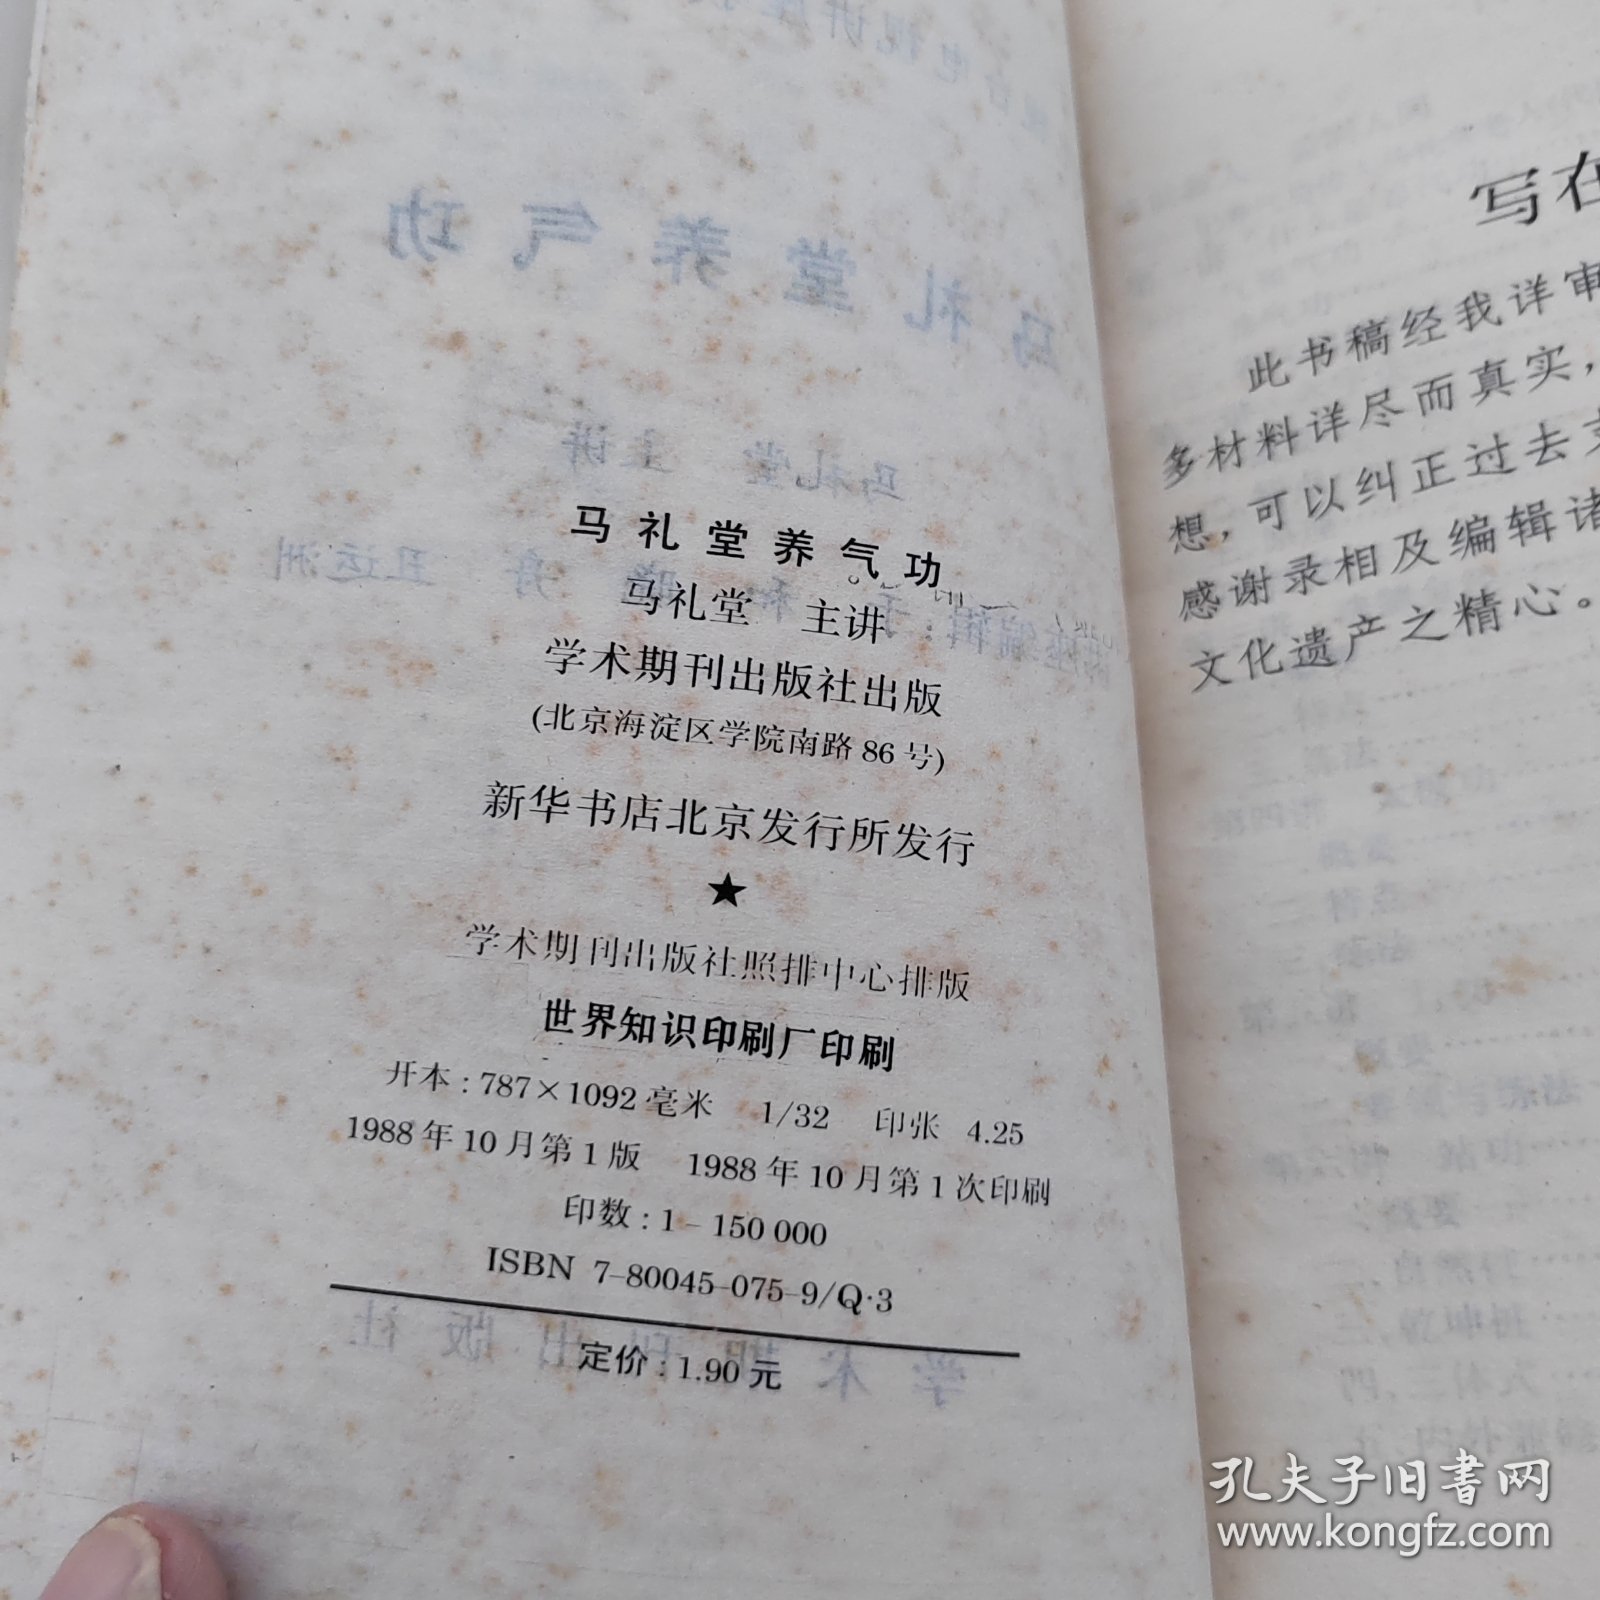 马礼堂养气功
马礼堂 主讲
学术期刊出版社出版
(北京海淀区学院南路 86 号)
新华书店北京发行所发行
★
学术期刊出版社照排中心排版
世界知识印刷厂印刷
开本：787×1092 毫米 1/32 印张 4.25
1988 年 10 月第 1 版 1988 年 10 月第 1 次印刷
印数：1–150 000
ISBN 7-80045-075-9/Q·3
定价：1.90 元
写在
此书稿经我详审
多材料详尽而真实，
想，可以纠正过去
感谢录相及编辑诸
文化遗产之精心。
孔夫子旧书网
www.kongfz.com